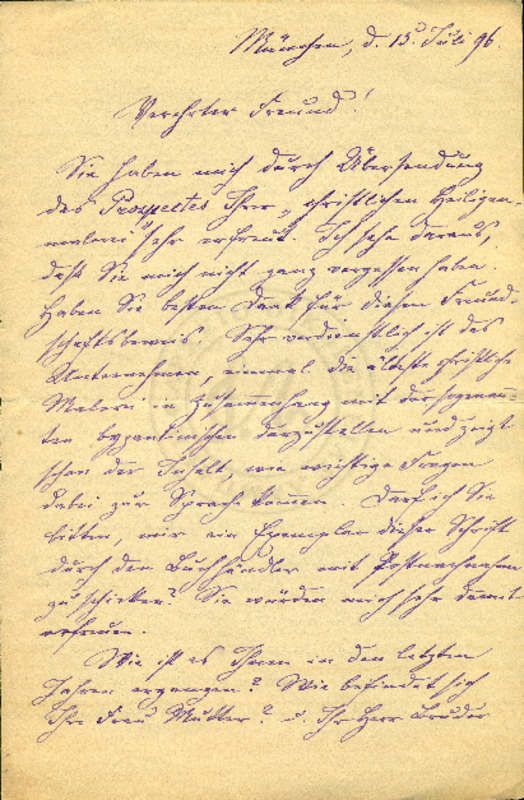 München, d. 15. Juli 96.
Verehrter Freund!
Sie haben mich durch Übersendung
des Prospectes Ihrer „christlichen Heiligen-
malerei" sehr erfreut. Ich sehe daraus,
daß Sie mich nicht ganz vergessen haben.
Haben Sie besten Dank für diesen Freund-
schaftsbeweis. Sehr verdienstlich ist das
Unternehmen, einmal die älteste christliche
Malerei in Zusammenhang mit der sogenann-
ten byzantinischen darzustellen und zeigt
schon der Inhalt, wie wichtige Fragen
dabei zur Sprache kommen. Darf ich Sie
bitten, mir ein Exemplar dieser Schrift
durch den Buchhändler mit Postnachnahme
zu schicken? Sie würden mich sehr damit
erfreuen.
Wie ist es Ihnen in den letzten
Jahren ergangen? Wie befindet sich
Ihre Frau Mutter? u. Ihr Herr Bruder